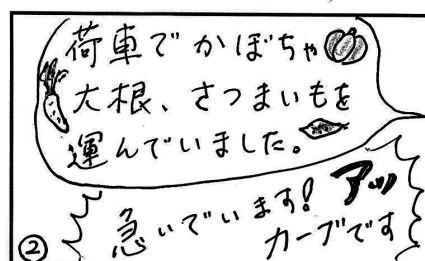 荷車でかぼちゃ
大根、さつまいもを
運んでいました。
急いでいます！アッ
カーブです
②